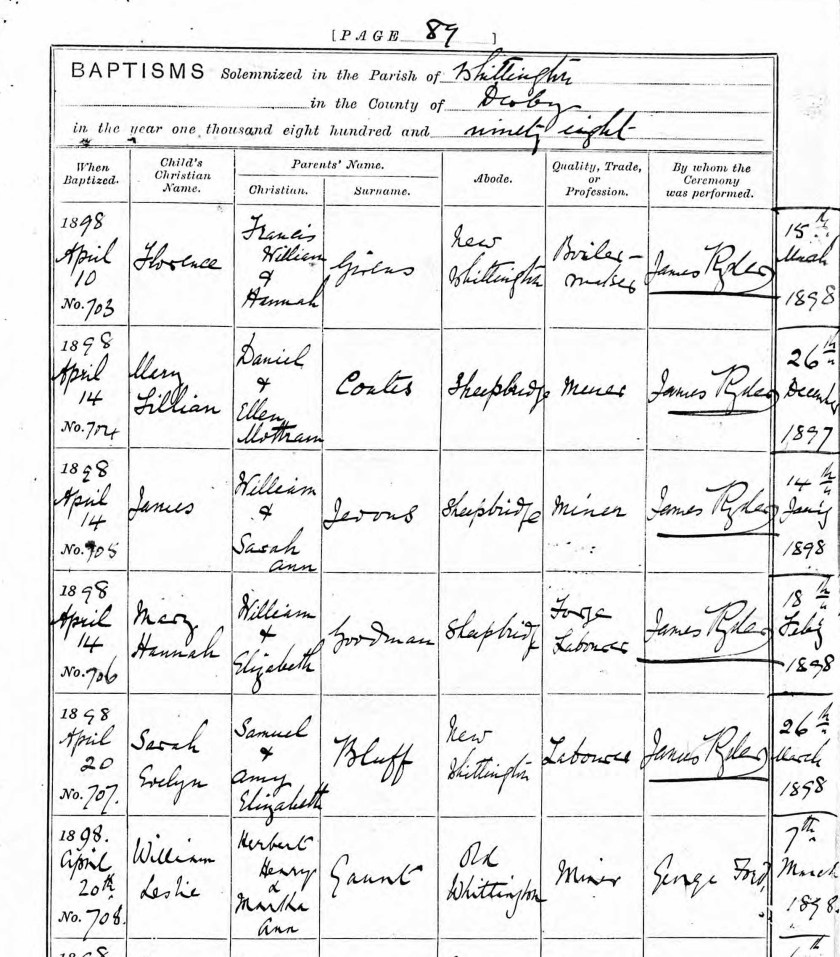 [PAGE 89]
BAPTISMS Solemnized in the Parish of Whittington
in the County of Derby
in the year one thousand eight hundred and ninety eight
When Baptized. Child's Christian Name. Parents' Name. Christian. Surname. Abode. Quality, Trade, or Profession. By whom the Ceremony was performed.
1898 April 10 No. 703 Florence Francis William & Hannah Givens New Whittington Boiler-maker James Ryder 15th March 1898
1898 April 14 No. 704 Mary Lillian Daniel & Ellen Mottram Coates Sheepbridge Miner James Ryder 26th December 1897
1898 April 14 No. 705 James William & Sarah Ann Jevons Sheepbridge Miner James Ryder 14th Jany 1898
1898 April 14 No. 706 Mary Hannah William & Elizabeth Goodman Sheepbridge Forge Labourer James Ryder 18th Feby 1898
1898 April 20 No. 707. Sarah Evelyn Samuel & Amy Elizabeth Bluff New Whittington Labourer James Ryder 26th March 1898
1898. April 20th No. 708. William Leslie Herbert Henry & Martha Ann Gaunt Old Whittington Miner George Ford, 7th March 1898.